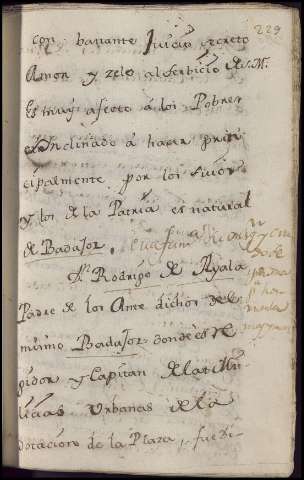 229
con bastante Juicio, secreto
Amor y zelo al serbicio de S. M.
Es muy afecto á los Pobres
é Inclinado á hacer prin
cipalmente por los suios
y los de la Patria es natural
de Badajoz.
Dn. Rodrigo de Ayala
Padre de los Ante dichos de el
mismo Badajoz donde es Re
gidor y Capitan de las Mi
licias Urbanas de la
Dotacion de la Plaza, fue Di-